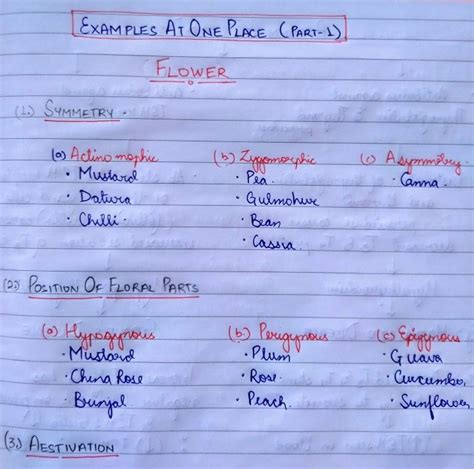 EXAMPLES AT ONE PLACE (PART-1)
FLOWER
(1.) SYMMETRY.
(a) Actinomophic (b) Zygomorphic (c) Asymmetry
• Mustard • Pea. • Canna.
• Datura • Gulmohur
• Chilli. • Bean
• Cassia.
(2.) POSITION OF FLORAL PARTS
(a) Hypogynous (b) Perigynous (c) Epigynous
• Mustard • Plum • Guava
• China Rose • Rose. • Cucumber
• Brinjal • Peach. • Sunflower
(3.) AESTIVATION